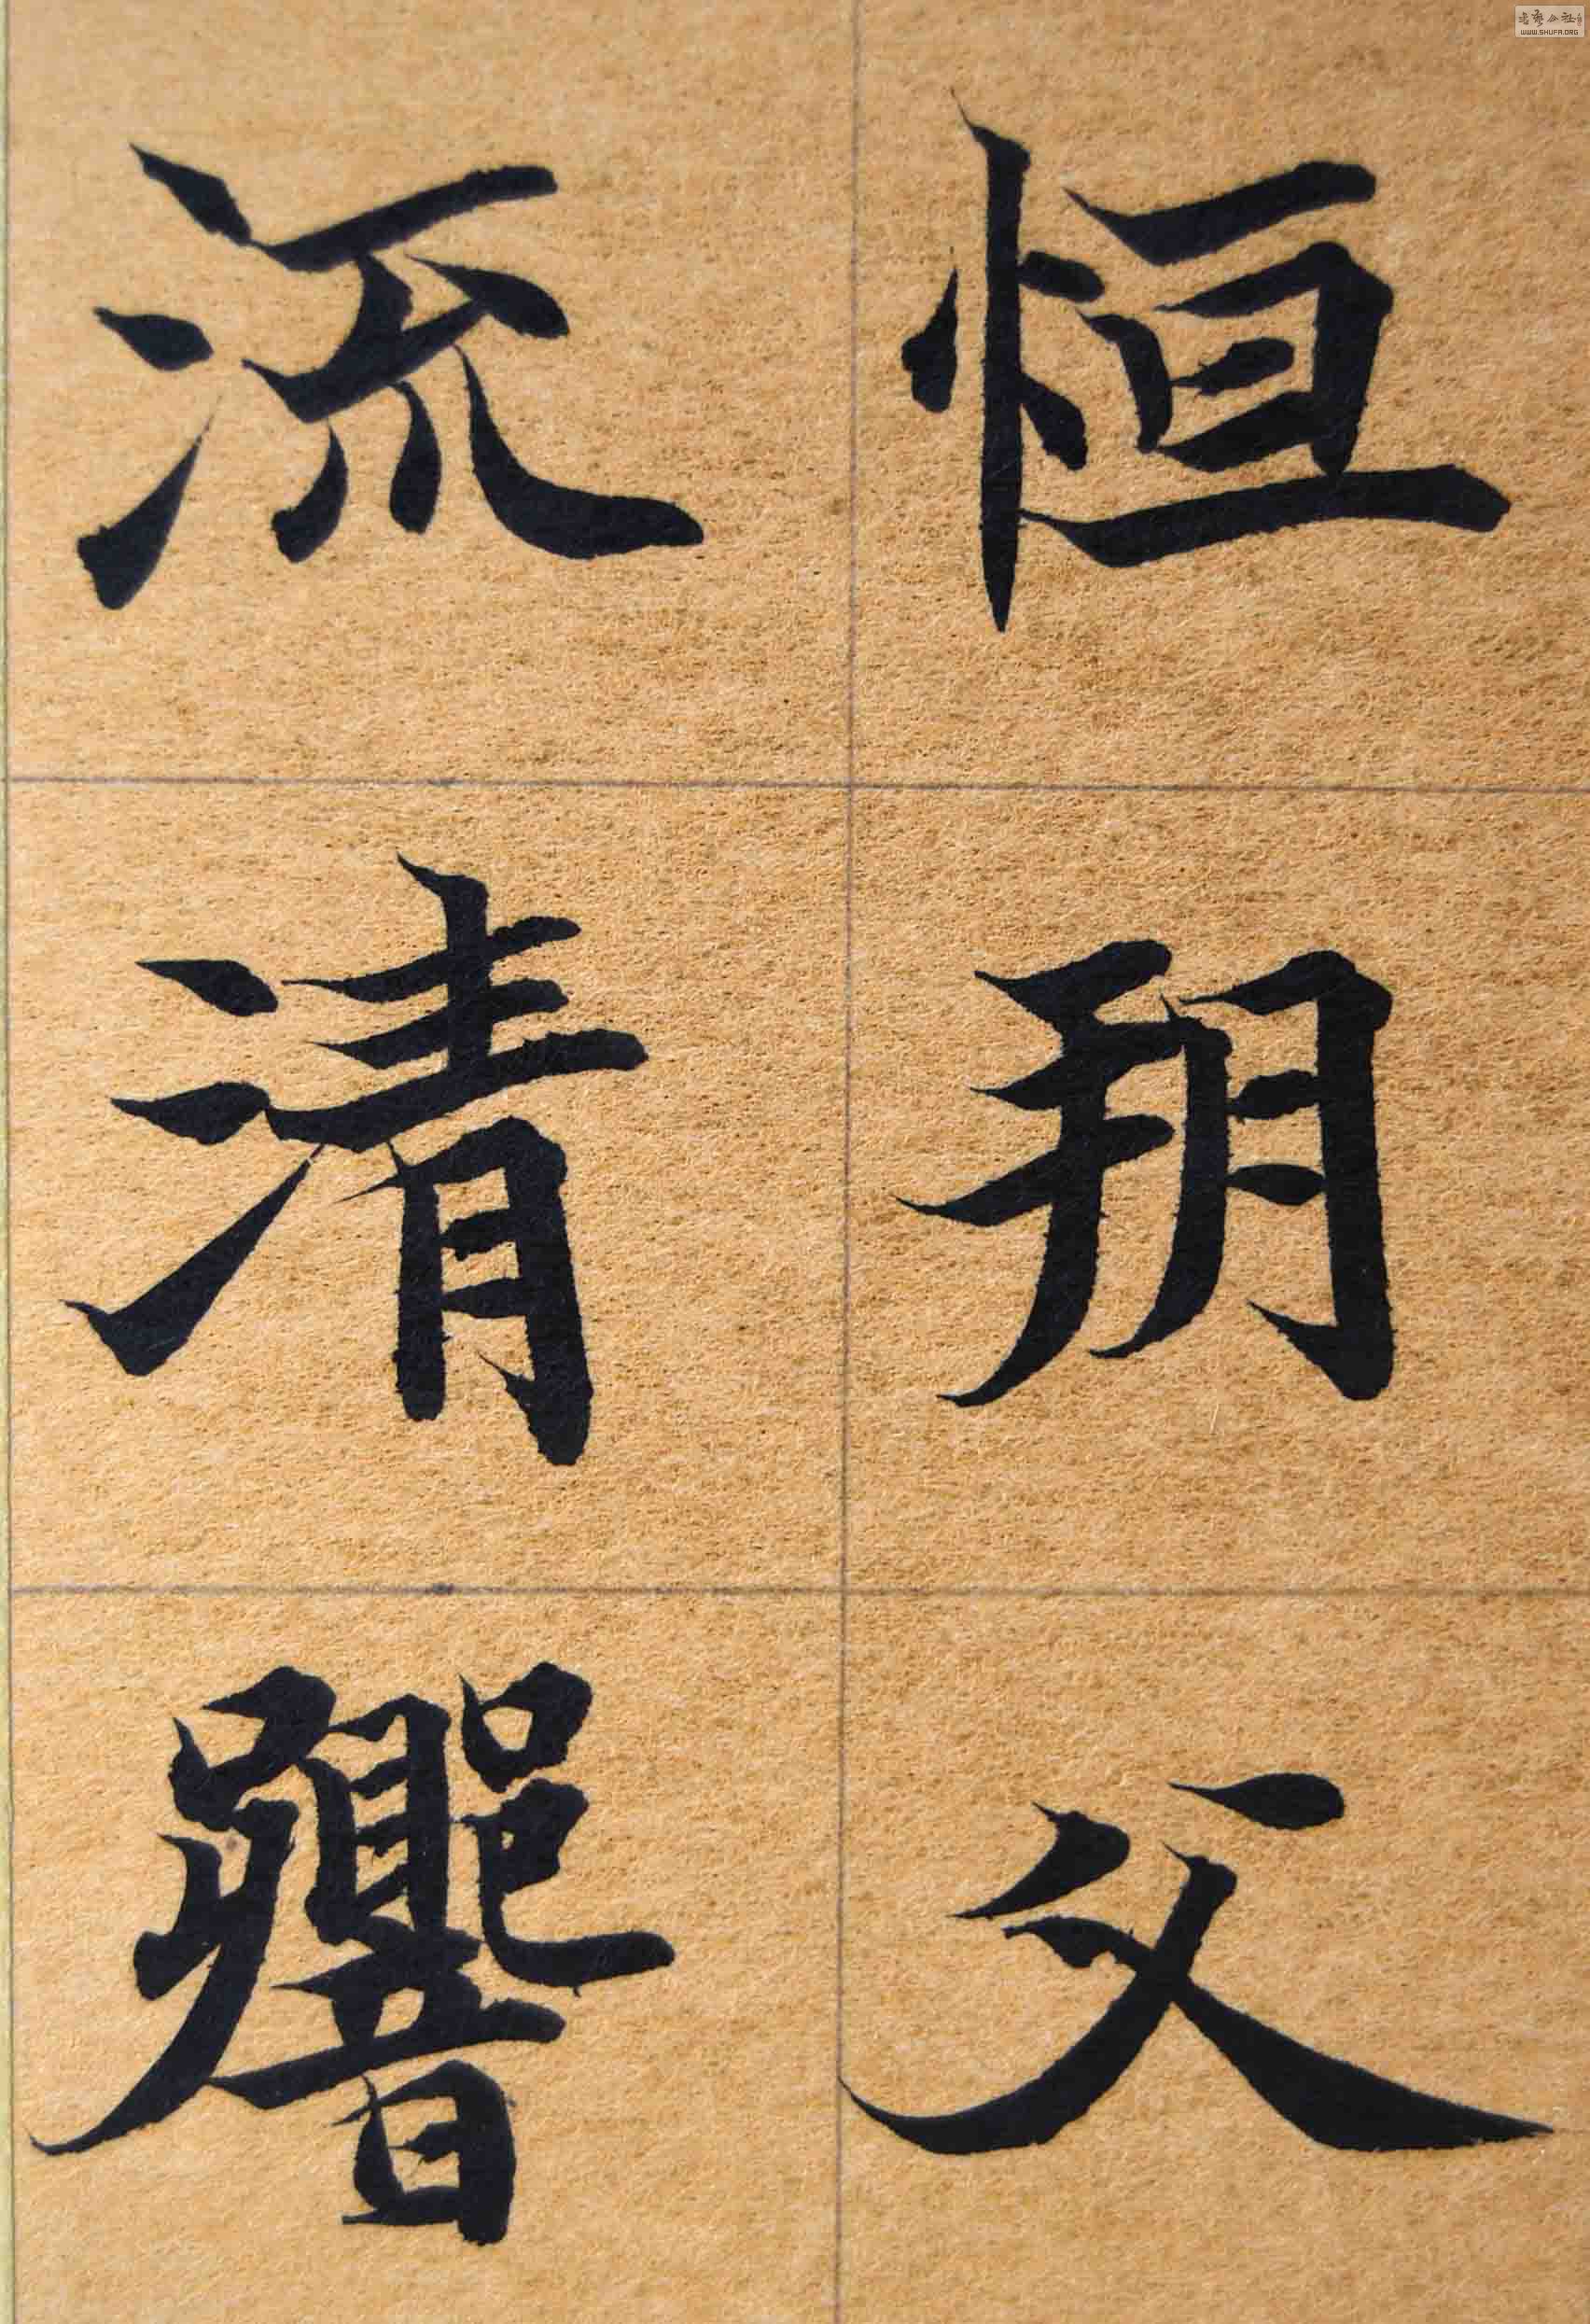 恒朔父
流清響
書藝公社
WWW.SHUFA.ORG